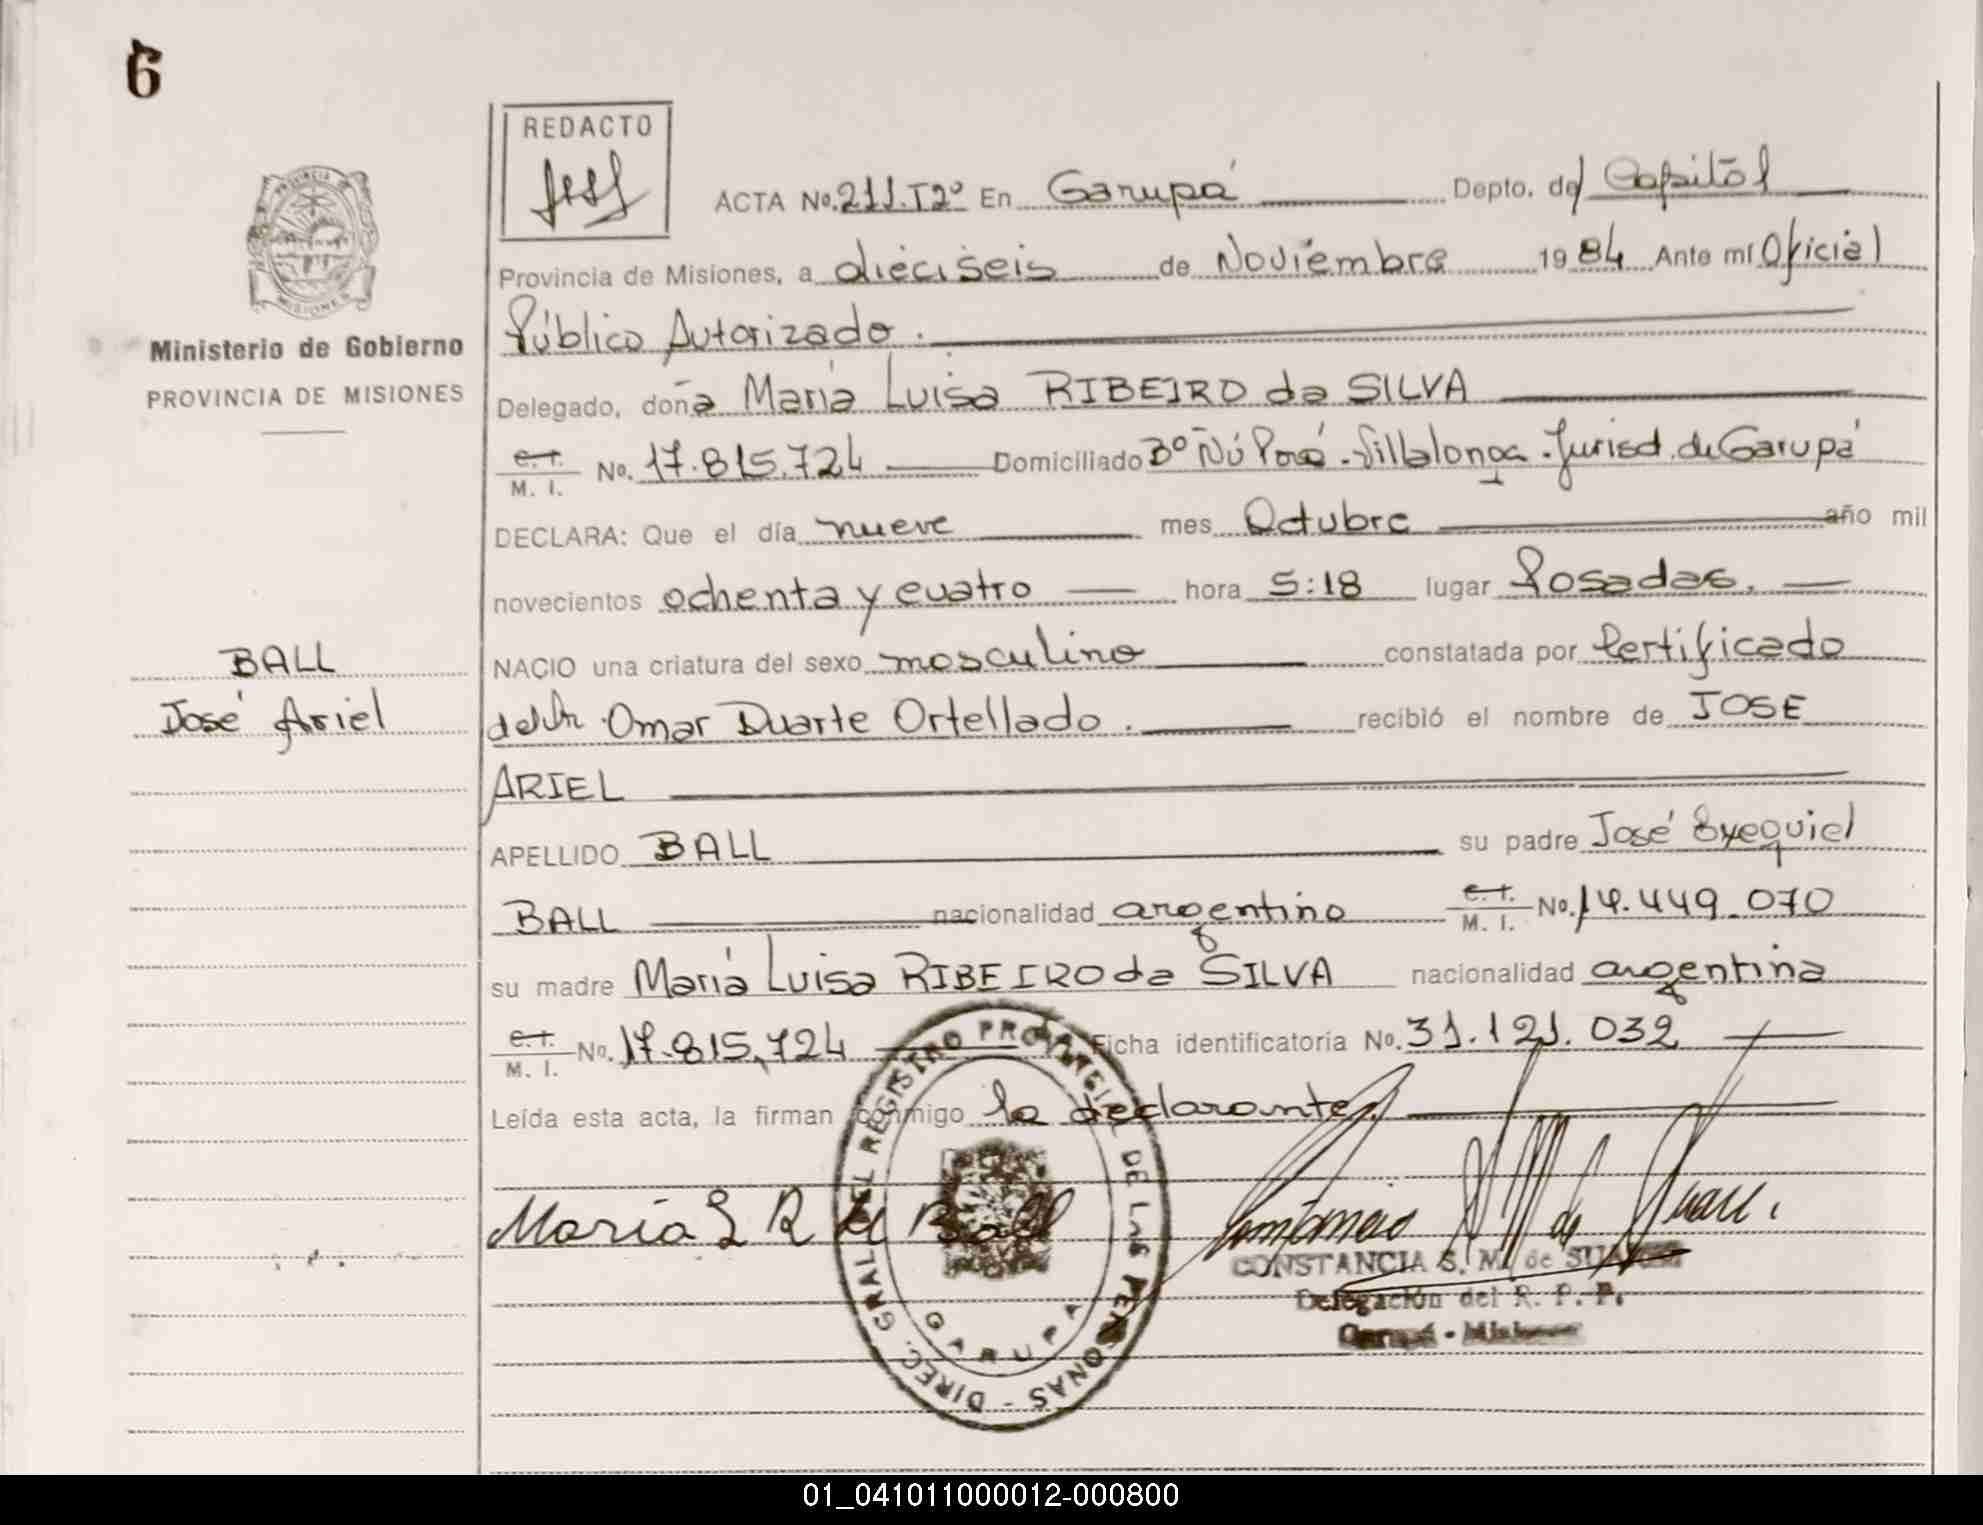 6
REDACTO
ACTA No. 211.T2º En Garupá Depto. de Capital
Provincia de Misiones, a dieciseis de Noviembre 1984 Ante mí Oficial
Ministerio de Gobierno
PROVINCIA DE MISIONES
Público Autorizado.
Delegado, doña María Luisa RIBEIRO da SILVA
C.I. M. I. No. 17.815.724 Domiciliado Bº Ñú Porá - Villalonga - Jurisd. de Garupá
DECLARA: Que el día nueve mes Octubre año mil
novecientos ochenta y cuatro hora 5:18 lugar Posadas.
BALL
José Ariel
NACIO una criatura del sexo masculino constatada por Certificado
del Dr. Omar Duarte Ortellado. recibió el nombre de JOSE
ARIEL
APELLIDO BALL su padre José Exequiel
BALL nacionalidad argentino C.I. M. I. No. 14.449.070
su madre María Luisa RIBEIRO da SILVA nacionalidad argentina
C.I. M. I. No. 17.815.724 Ficha identificatoria No. 31.121.032
Leída esta acta, la firman conmigo la declarante.
María L R de Ball
DIREC. GRAL. DEL REGISTRO PROVINCIAL DE LAS PERSONAS -
GARUPA
CONSTANCIA S. M. de SUAREZ
Delegación del R. P. P.
Garupá - Misiones
01_041011000012-000800